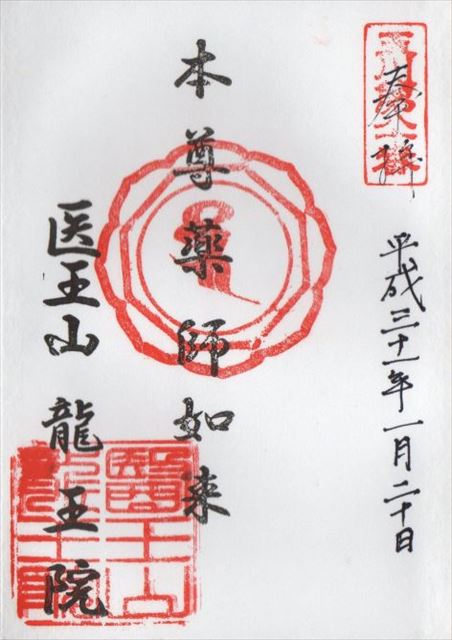 奉拝
平成三十一年一月二十日
本尊薬師如来
医王山龍王院